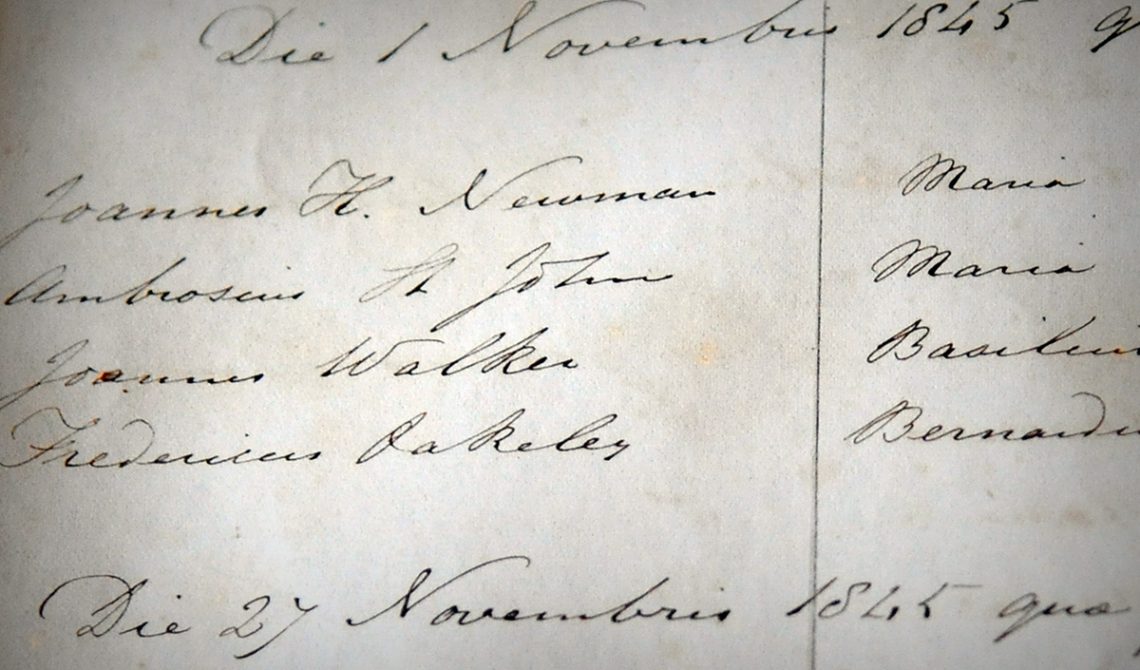 Die 1 Novembris 1845 q
Joannes H. Newman Maria
Ambrosius St John Maria
Joannes Walker Basilius
Fredericus Oakeley Bernardi
Die 27 Novembris 1845 quæ